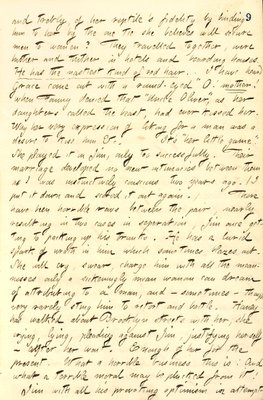 9
and trebly of her reptile's fidelity by binding
him to her by the one tie she believes will secure
men to women? They travelled together, were
hither and thither in hotels and boarding houses.
He has the nastiest kind of red hair. I have heard
Grace come out with a round-eyed "O, mother!"
when Fanny denied that "Uncle Oliver," as her
daughters called the beast, had ever kissed her.
Why her very expression of liking for a man was a
desire to kiss him. It's "her little game."
She played it on Jim, only too successfully. Their
marriage developed no new intimacies between them
as I was instinctively conscious two years ago. I
put it down and scored it out again. There
have been horrible rows between the pair, nearly
resulting in two cases in separation, Jim once getting
to packing up his trunks. He has a lurid
spark of wrath in him which sometimes blazes out.
She will cry, swear, charge him with all the meannesses
only a sickeningly mean woman can dream
of attributing to a man, and sometimes
very nearly sting him to retort and battle. Haney
has walked about Brooklyn streets with her, she
crying, lying, pleading against Jim, justifying herself
after her wont. Enough of her for the
present. What a horrible business this is! And
what a terrible moral may be deduced from it!
Jim with all his provoking optimism or attempt